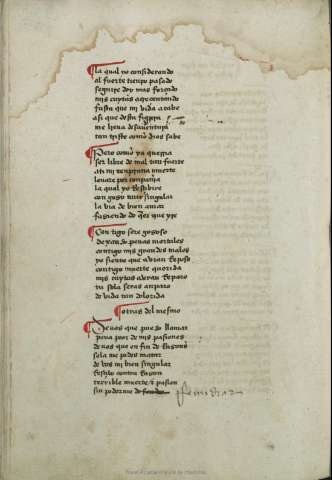 la qual yo considerando
al fuerte tienpo pasado
seguire doy mas forçado
mis cuytas acreçentando
fasta que mi vida acabe
asi que desta figura
me lieua desuentura
tan triste como dios sabe
Pero como ya querria
ser libre de mal tan fuerte
ay mi tenprana muerte
leuate por conpañia
la qual yo resçibire
con gozo muy singular
la via de bien amar
fasiendo do
Contigo sere gozoso
dexando penas mortales
contigo mis grandes males
yo siento que avran reposo
contigo muerte querida
mis cuytas avran reparo
tu sola seras anparo
de vida tan dolorida
otras del mesmo
Deuos que puedo llamar
pena por de mis pasiones
de uos que en fin de
sola me podes matar
de vos mi bien singular
resçibo contra rason
terrible muerte e pasion
sin poderme de
Real Academia de la Historia